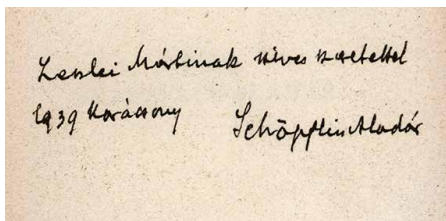 Leszlei Mártinak szíves szeretettel
1939 Karácsony
Schöpflin Aladár